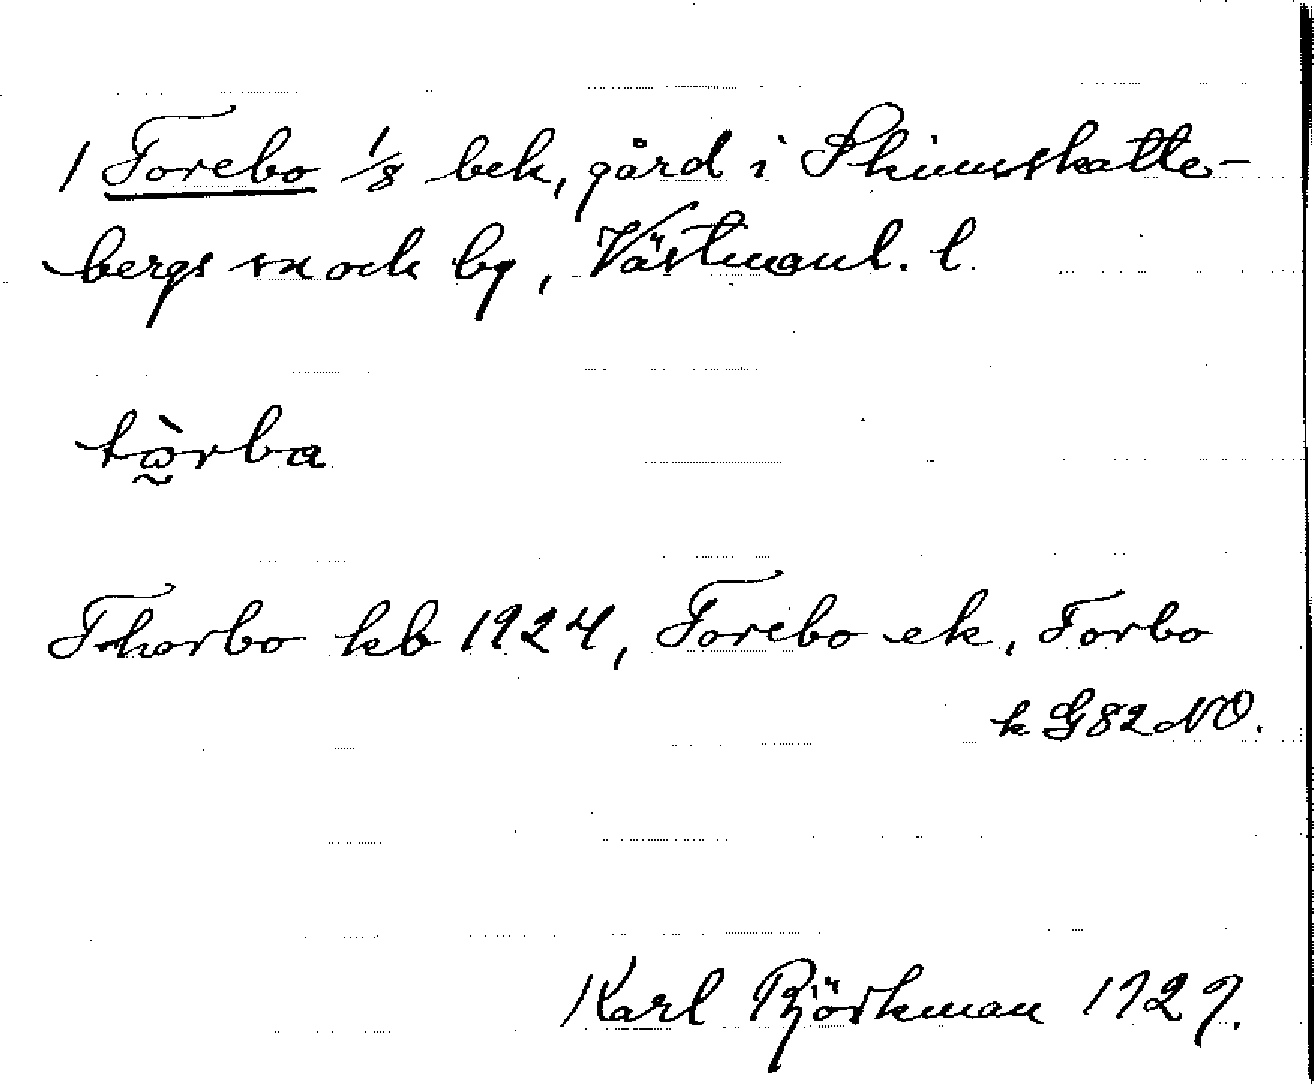 1 Torebo 1/8 bek, gård i Skinnskatte-
bergs sn och by, Västmanl. l.
tɷ̀rba
Thorbo kb 1924, Torebo ek, Torbo
k G82 NO.
Karl Björkman 1929.